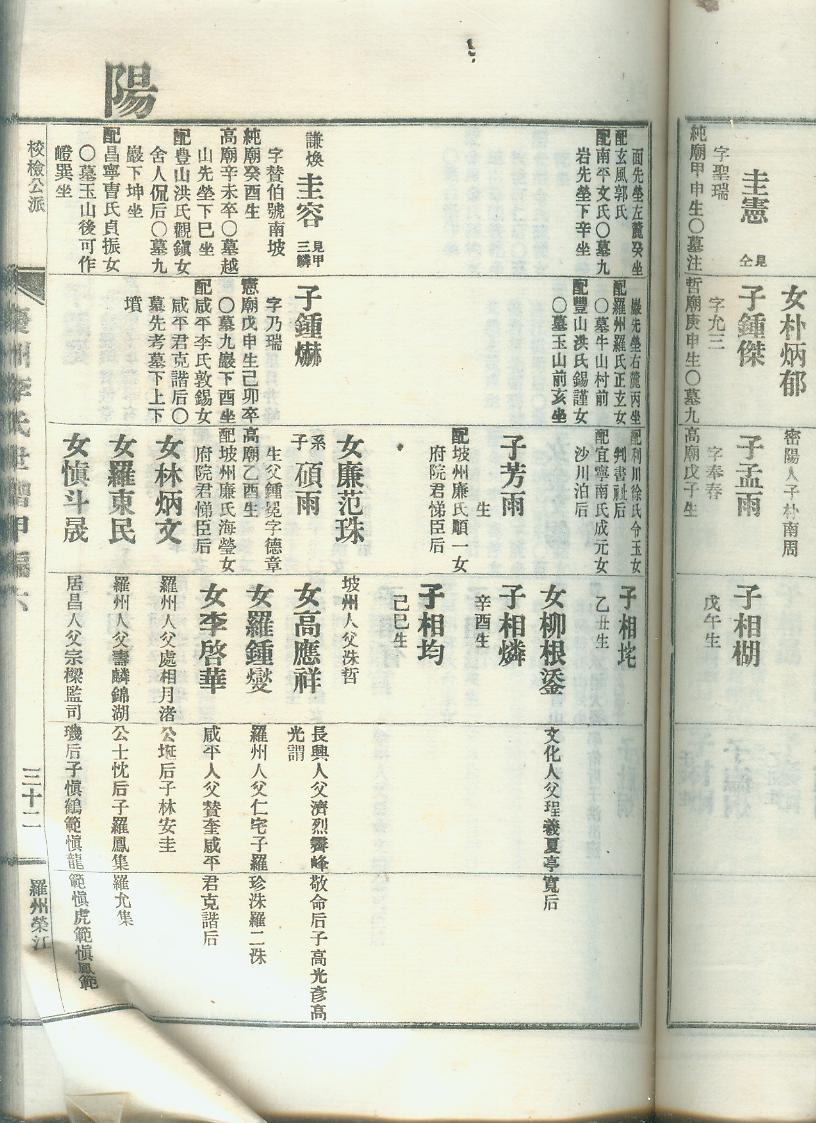 圭憲
見仝
字聖瑞
純廟甲申生〇墓注
女朴炳郁
子鍾傑
字允三
哲廟庚申生〇墓九
密陽人子朴南周
子孟雨
字奉春
高廟戊子生
子相楜
戊午生
陽
面先塋左麓癸坐
配玄風郭氏
配南平文氏〇墓九
岩先塋下辛坐
謙煥
圭容
見甲三鱗
字賛伯號南坡
純廟癸酉生
高廟辛未卒〇墓越
山先塋下巳坐
配豊山洪氏觀鎭女
舍人侃后〇墓九
巖下坤坐
配昌寧曺氏貞振女
〇墓玉山後可作
嶝巽坐
巖先塋右麓丙坐
配羅州羅氏正玄女
〇墓牛山村前
配豊山洪氏錫謹女
〇墓玉山前亥坐
子鍾爀
字乃瑞
憲廟戊申生己卯卒
〇墓九巖下酉坐
配咸平李氏敦錫女
咸平君克諧后〇
墓先考墓下上下
墳
配利川徐氏令玉女
判書祉后
配宜寧南氏成元女
沙川泊后
子芳雨
生
配坡州廉氏順一女
府院君悌臣后
女廉范珠
系子
碩雨
生父鍾冕字德章
高廟乙酉生
配坡州廉氏海瑩女
府院君悌臣后
女林炳文
女羅東民
女愼斗晟
子相垞
乙丑生
女柳根鋈
子相燐
辛酉生
子相均
己巳生
坡州人父洙哲
女高應祥
女羅鍾燮
女李啓華
羅州人父處相月渚
羅州人父壽麟錦湖
居昌人父宗樑監司
文化人父珵羲夏亭寬后
長興人父濟烈霽峰敬命后子高光彥高
光謂
羅州人父仁宅子羅珍洙羅二洙
咸平人父賛奎咸平君克諧后
公埏后子林安圭
公士忱后子羅鳳集羅允集
璣后子愼鶴範愼龍範愼虎範愼鳳範
校檢公派
慶州李氏世譜甲編六
三十二
羅州榮江